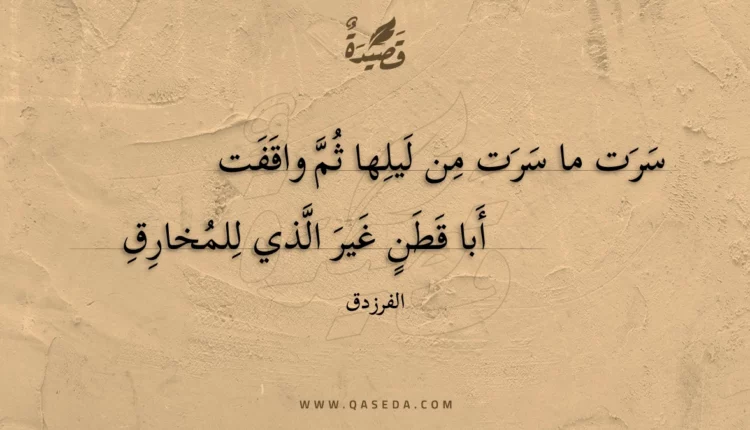 قَصِيدَةٌ
سَرَت ما سَرَت مِن لَيلِها ثُمَّ واقَفَت
أَبا قَطَنٍ غَيرَ الَّذي لِلمُخارِقِ
الفرزدق
WWW.QASEDA.COM